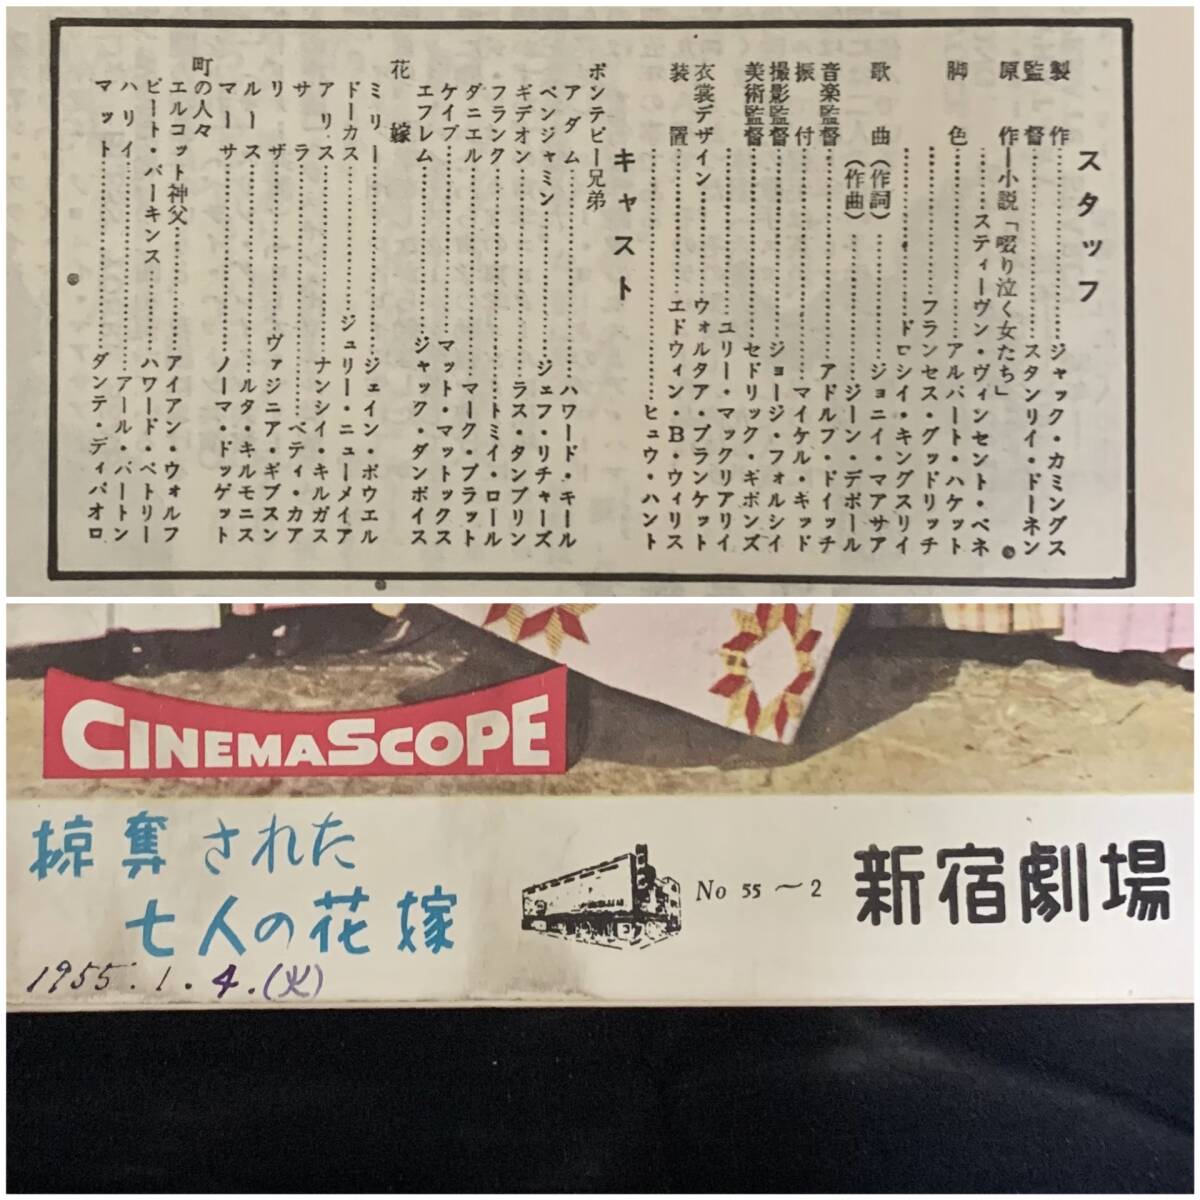 スタッフ
製作……ジャック・カミングス
監督……スタンリイ・ドーネン
原作―小説「啜り泣く女たち」
……スティーヴン・ヴィンセント・ベネ
脚色……アルバート・ハケット
……フランセス・グッドリッチ
……ドロシイ・キングスリイ
歌曲(作詞)……ジョニイ・マアサア
(作曲)……ジーン・デポール
音楽監督……アドルフ・ドイッチ
振付……マイケル・キッド
撮影監督……ジョージ・フォルシイ
美術監督……セドリック・ギボンズ
……ユリー・マックリアリイ
衣裳デザイン……ウォルタア・プランケット
装置……エドウィン・B・ウィリス
……ヒュウ・ハント
キャスト
ポンテピー兄弟
アダム……ハワード・キール
ベンジャミン……ジェフ・リチャーズ
ギデオン……ラス・タンブリン
フランク……トミイ・ロール
ダニエル……マーク・プラット
ケイブ……マット・マットックス
エフレム……ジャック・ダンボイス
花嫁
ミリー……ジェイン・ポウエル
ドーカス……ジュリー・ニューメイア
アリス……ナンシイ・キルガス
サラ……ベティ・カア
リザ……ヴァジニア・ギブスン
ルース……ルタ・キルモニス
マーサ……ノーマ・ドッゲット
町の人々
エルコット神父……アイアン・ウォルフ
ピート・パーキンス……ハワード・ペトリー
ハリイ……アール・バートン
マット……ダンテ・ディパオロ
CINEMASCOPE
掠奪された
七人の花嫁
1955.1.4.(火)
No 55～2
新宿劇場